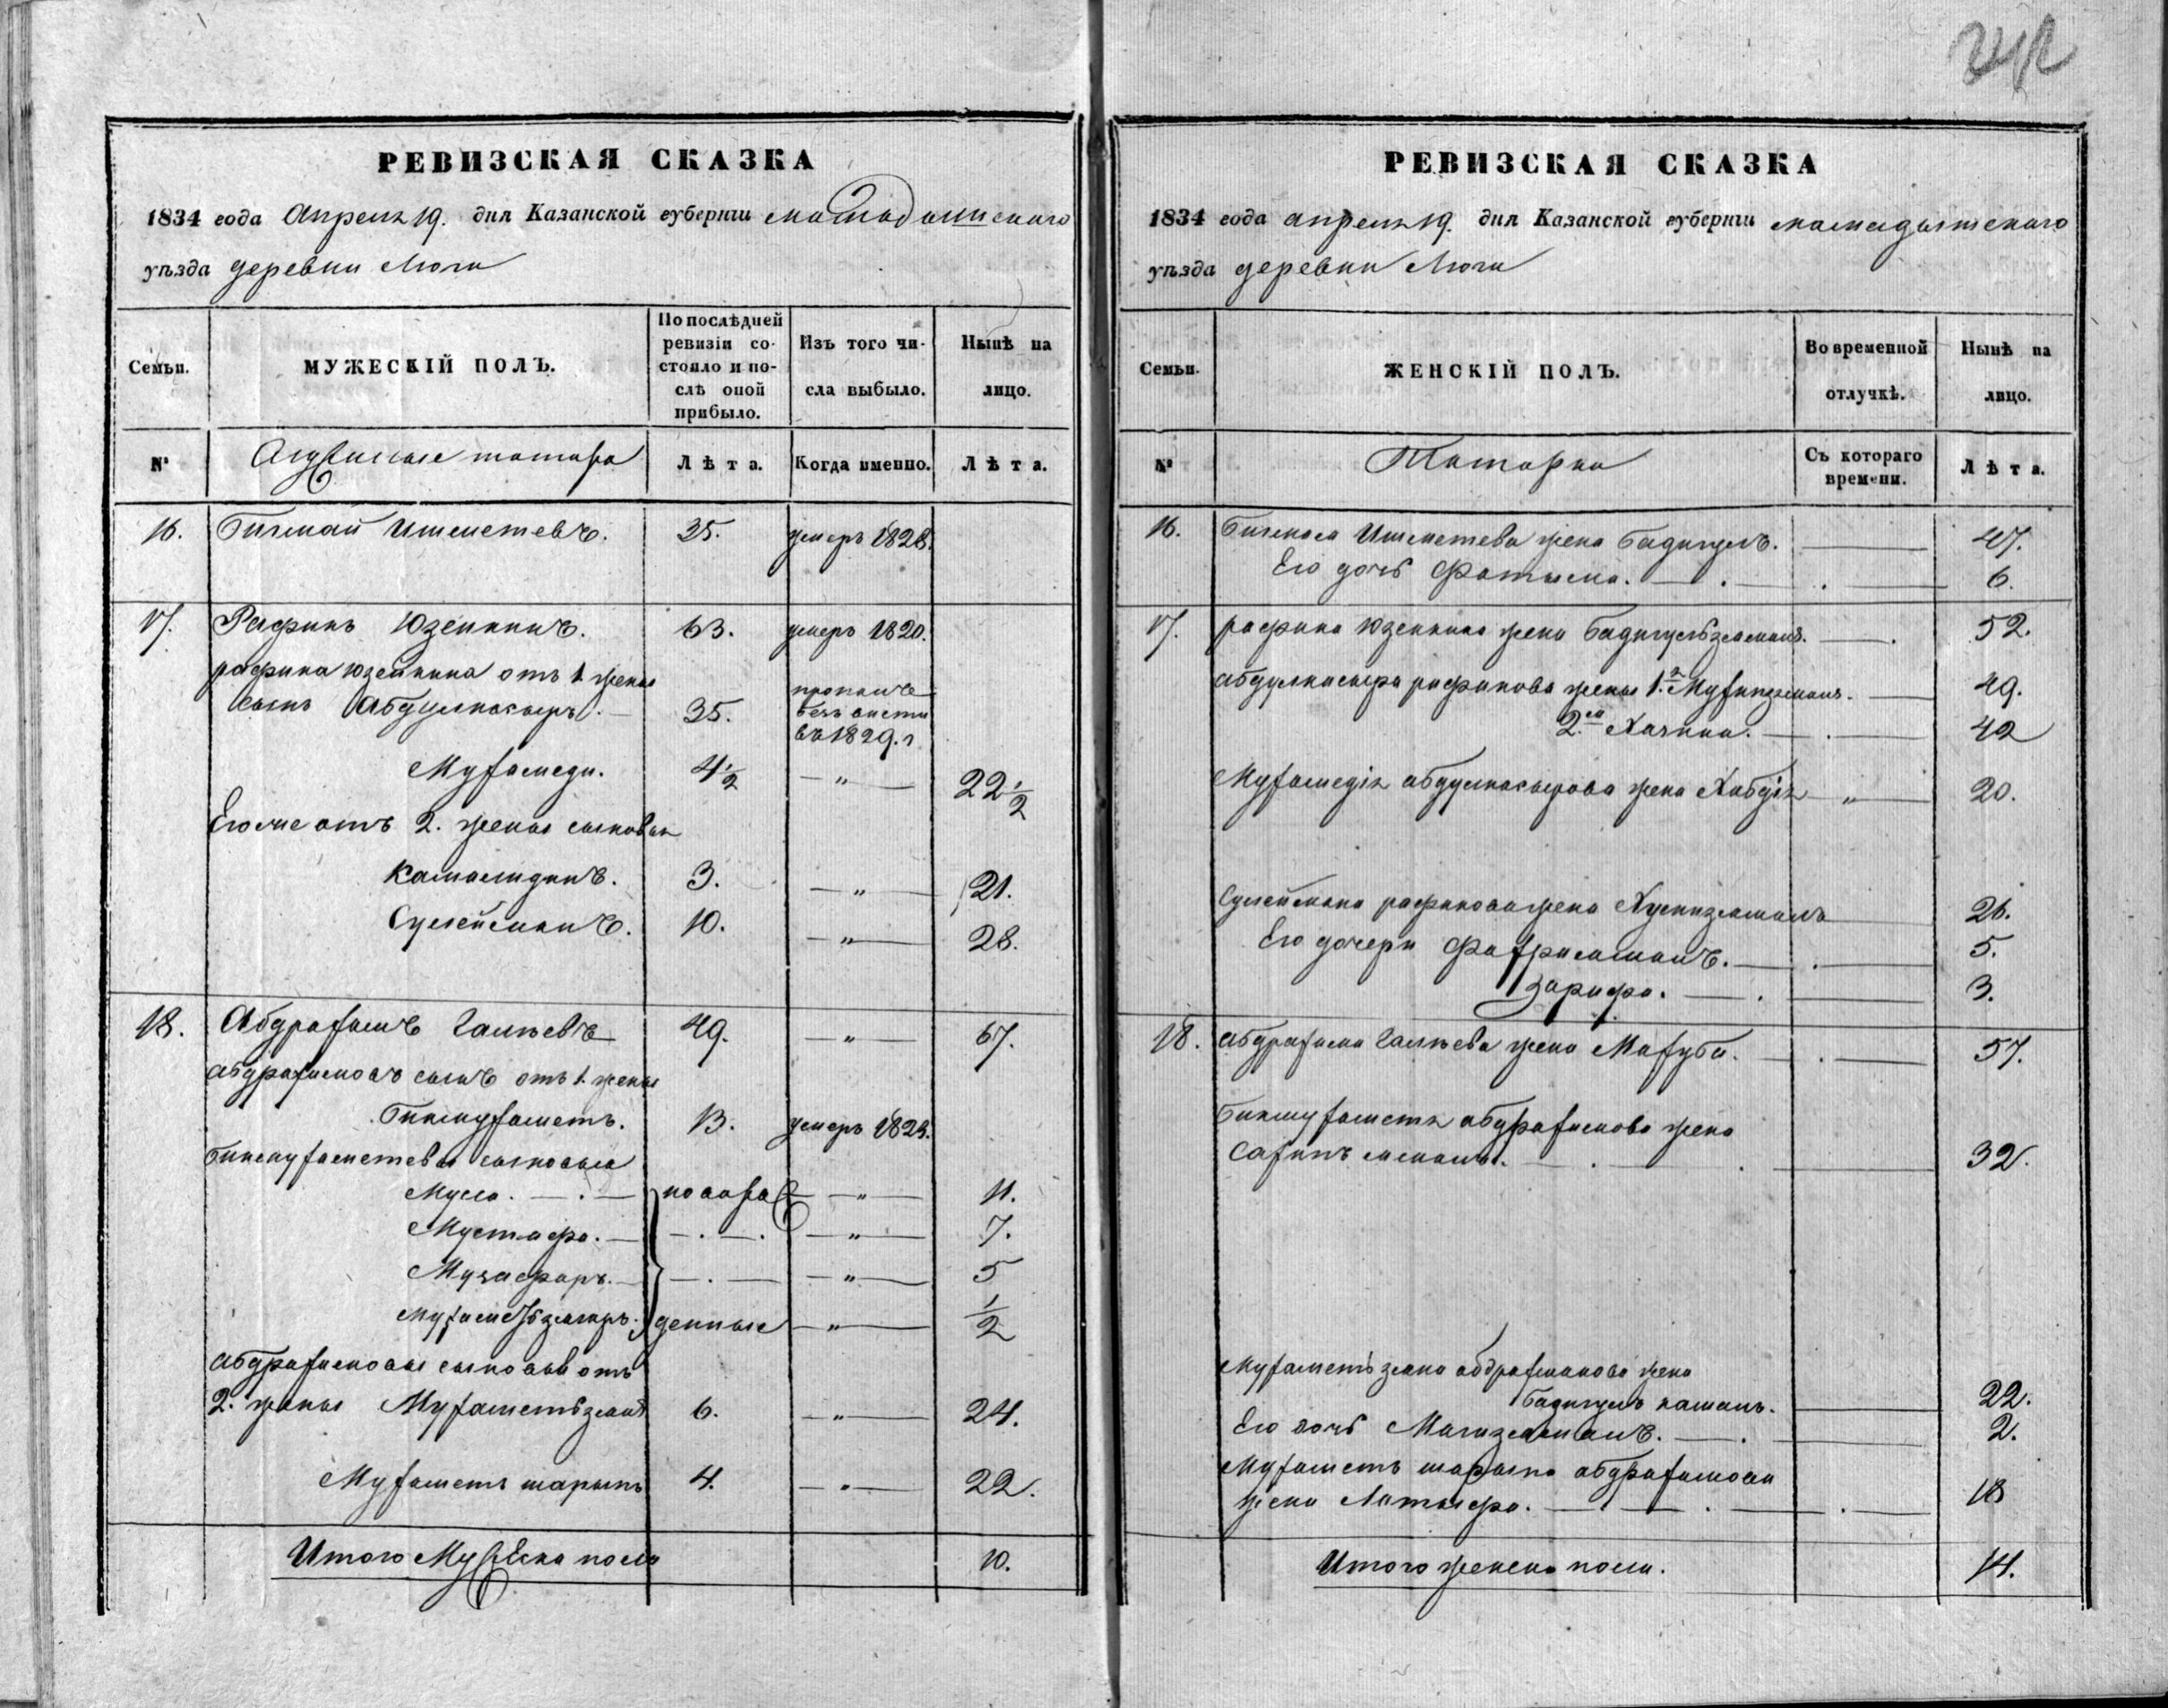 РЕВИЗСКАЯ СКАЗКА
1834 года Апреля 19. дня Казанской губерніи мамадышскаго
уѣзда деревни Люги
Семьи.
МУЖЕСКІЙ ПОЛЪ.
По послѣдней ревизіи со-
стояло и по-
слѣ оной
прибыло.
Изъ того чи-
сла выбыло.
Нынѣ на
лицо.
№
татара
Лѣта.
Когда именно.
Лѣта.
16. Бикмай Ишметевъ. 35. умеръ 1828.
17. Рафикъ Юзеикинъ. 63. умеръ 1820.
рафика юзеикина отъ 1 жены
сынъ Абдулнасыръ. 35. пропалъ безъ вести въ 1829. г
Мухамеди. 4½ — " — 22½
Его же отъ 2. жены сыновья
Камалидинъ. 3. — " — 21.
Сулейманъ. 10. — " — 28.
18. Абдрахимъ Галѣевъ 49. — " — 67.
абдрахимовъ сынъ отъ 1. жены
Бикмухаметъ. 13. умеръ 1829.
Бикмухаметевы сыновья
Муса. — . — новоро — " — 11.
Мустафа. — — . — . — " — 7.
Музафаръ. — — . — — " — 5
денные — " — ½
абдрахимовы сыновья отъ
2. жены Мухаметьзянъ 6. — " — 24.
Мухаметъ шарыпъ 4. — " — 22.
Итого Мужеска пола 10.
242
РЕВИЗСКАЯ СКАЗКА
1834 года апреля 19. дня Казанской губерніи мамадышскаго
уѣзда деревни Люги
Семьи.
ЖЕНСКІЙ ПОЛЪ.
Во временной
отлучкѣ.
Нынѣ на
лицо.
№
Татарки
Съ котораго
времени.
Лѣта.
16. Бикмая Ишметева жена Бадигулъ. — 47.
Его дочь Фатыма. — . — 6.
17. рафика юзеикина жена Бадигульзямалъ. — . 52.
абдулнасыра рафикова жены 1.я — 49.
2.ая — . — 42
Мухамедія абдулнасырова жена Хабдія — " — 20.
Сулеймана рафикова жена Хуснизямалъ — 26.
Его дочери Фахриямалъ. — . — 5.
Зарифа. — . — 3.
18. абдрахима Галѣева жена Махуба. — . — 57.
Бикмухаметя абдрахимова жена
— . — . — 32.
Мухаметьзяна абдрахманова жена
Бадигулъ камалъ. — 22.
Его дочь Магизямалъ. — . — 2.
Мухаметъ шарыпа абдрахимова
жена Латыфа. — . — . — 18
Итого женска пола. 14.